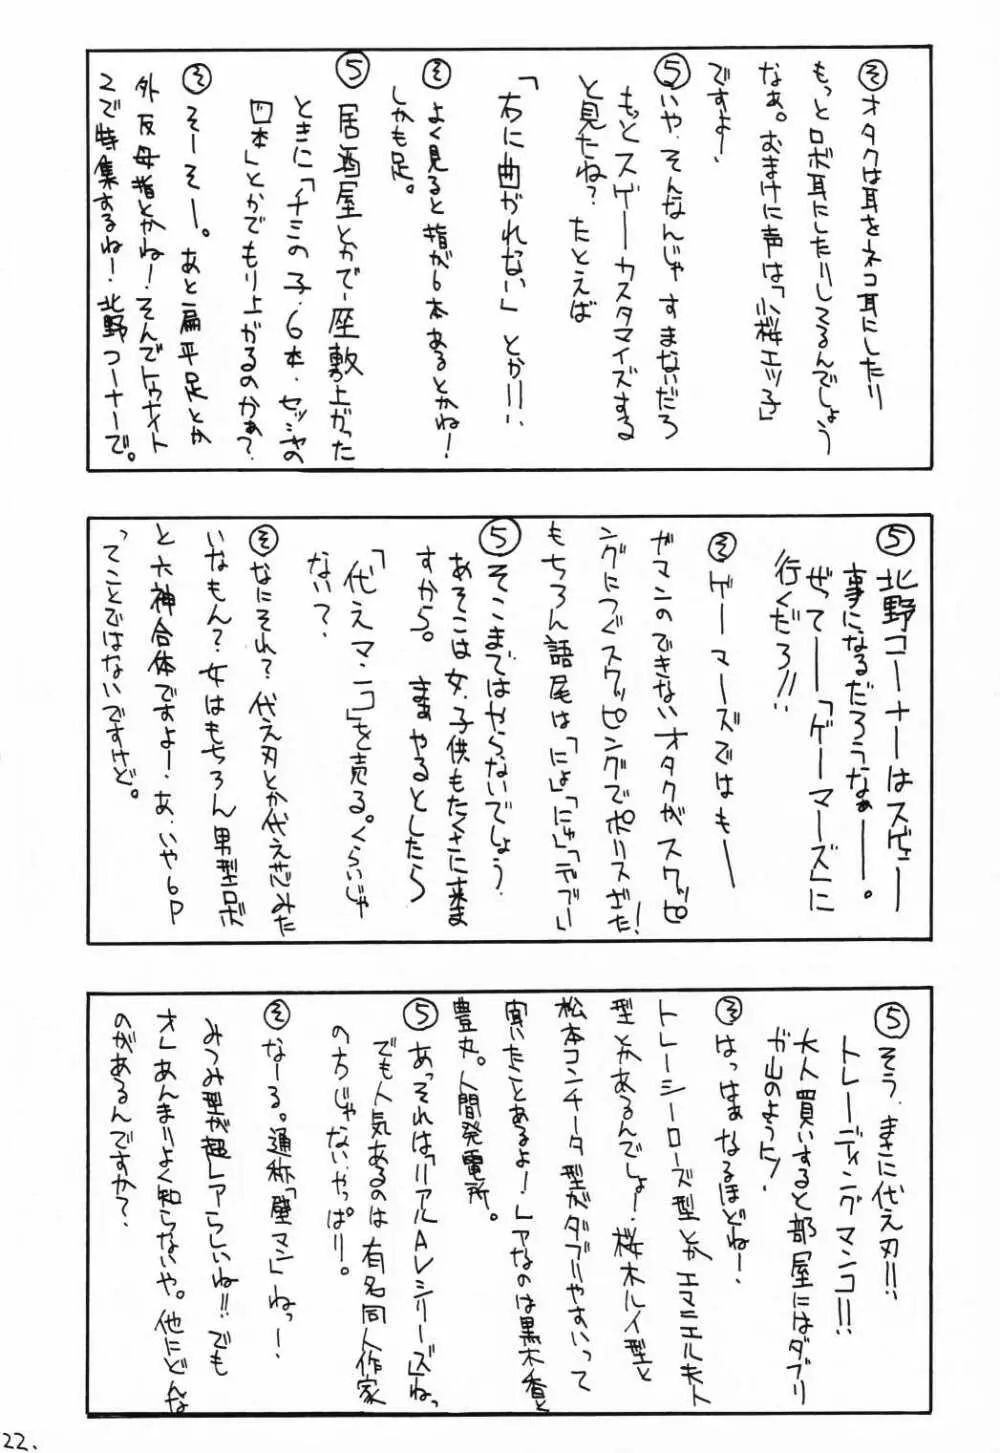 そオタクは耳をネコ耳にしたり
もっとロボ耳にしたりしてるんでしょう
なぁ。おまけに声は「小桜エツ子」
ですよー
5いや、そんなんじゃすまないだろ
もっとスゲーカスタマイズする
と見たね?たとえば
「右に曲がれない」とか!!
そよく見ると指が6本あるとかね!
しかも足。
5居酒屋とかで座敷上がった
ときに「チミの子、6本、セッシャの
四本」とかでもり上がるのかぁ?
そそーそー。あと扁平足とか
外反母指とかね!そんでトゥナイト
2で特集するね!北野コーナーで。
5北野コーナーはスゲェー
事になるだろうなぁー。
ぜてー「ゲーマーズ」に
行くだろ!!
そゲーマーズではもー
ガマンのできないオタクがスワッピ
ングにつぐスワッピングでポリスざた!
もちろん語尾は「にょ」「にゅ」「でい
5そこまではやらないでしょう。
あそこは女、子供もたくさんに来ま
すから。まぁやるとしたら
「代えマンコ」を売る。くらいじゃ
ない?
そなにそれ?代え刃とか代え芯みた
いなもん?女はもちろん男型ロボ
と六神合体ですよー、あ、いや6P
ってことではないですけど。
5そう、まさに代え刃!!
トレーディングマンコ!!
大人買いすると部屋にはダブリ
が山のように!
そはっはぁなるほどねー、
トレーシーローズ型とかエマニエル夫人
型とかあるんでしょー、桜木ルイ型と
松本コンチータ型がダブりやすいって
聞いたことあるよー!レアなのは黒木香と
豊丸。人間発電所。
5あっそれは「リアルAVシリーズ」ねっ
でも人気あるのは有名同人作家
のちじゃない、やっぱり。
そなーる。通称「壁マン」ねっー、
みつみ型が超レアらしいね!!でも
オレあんまりよく知らないや。他にどんな
のがあるんですか?
22.